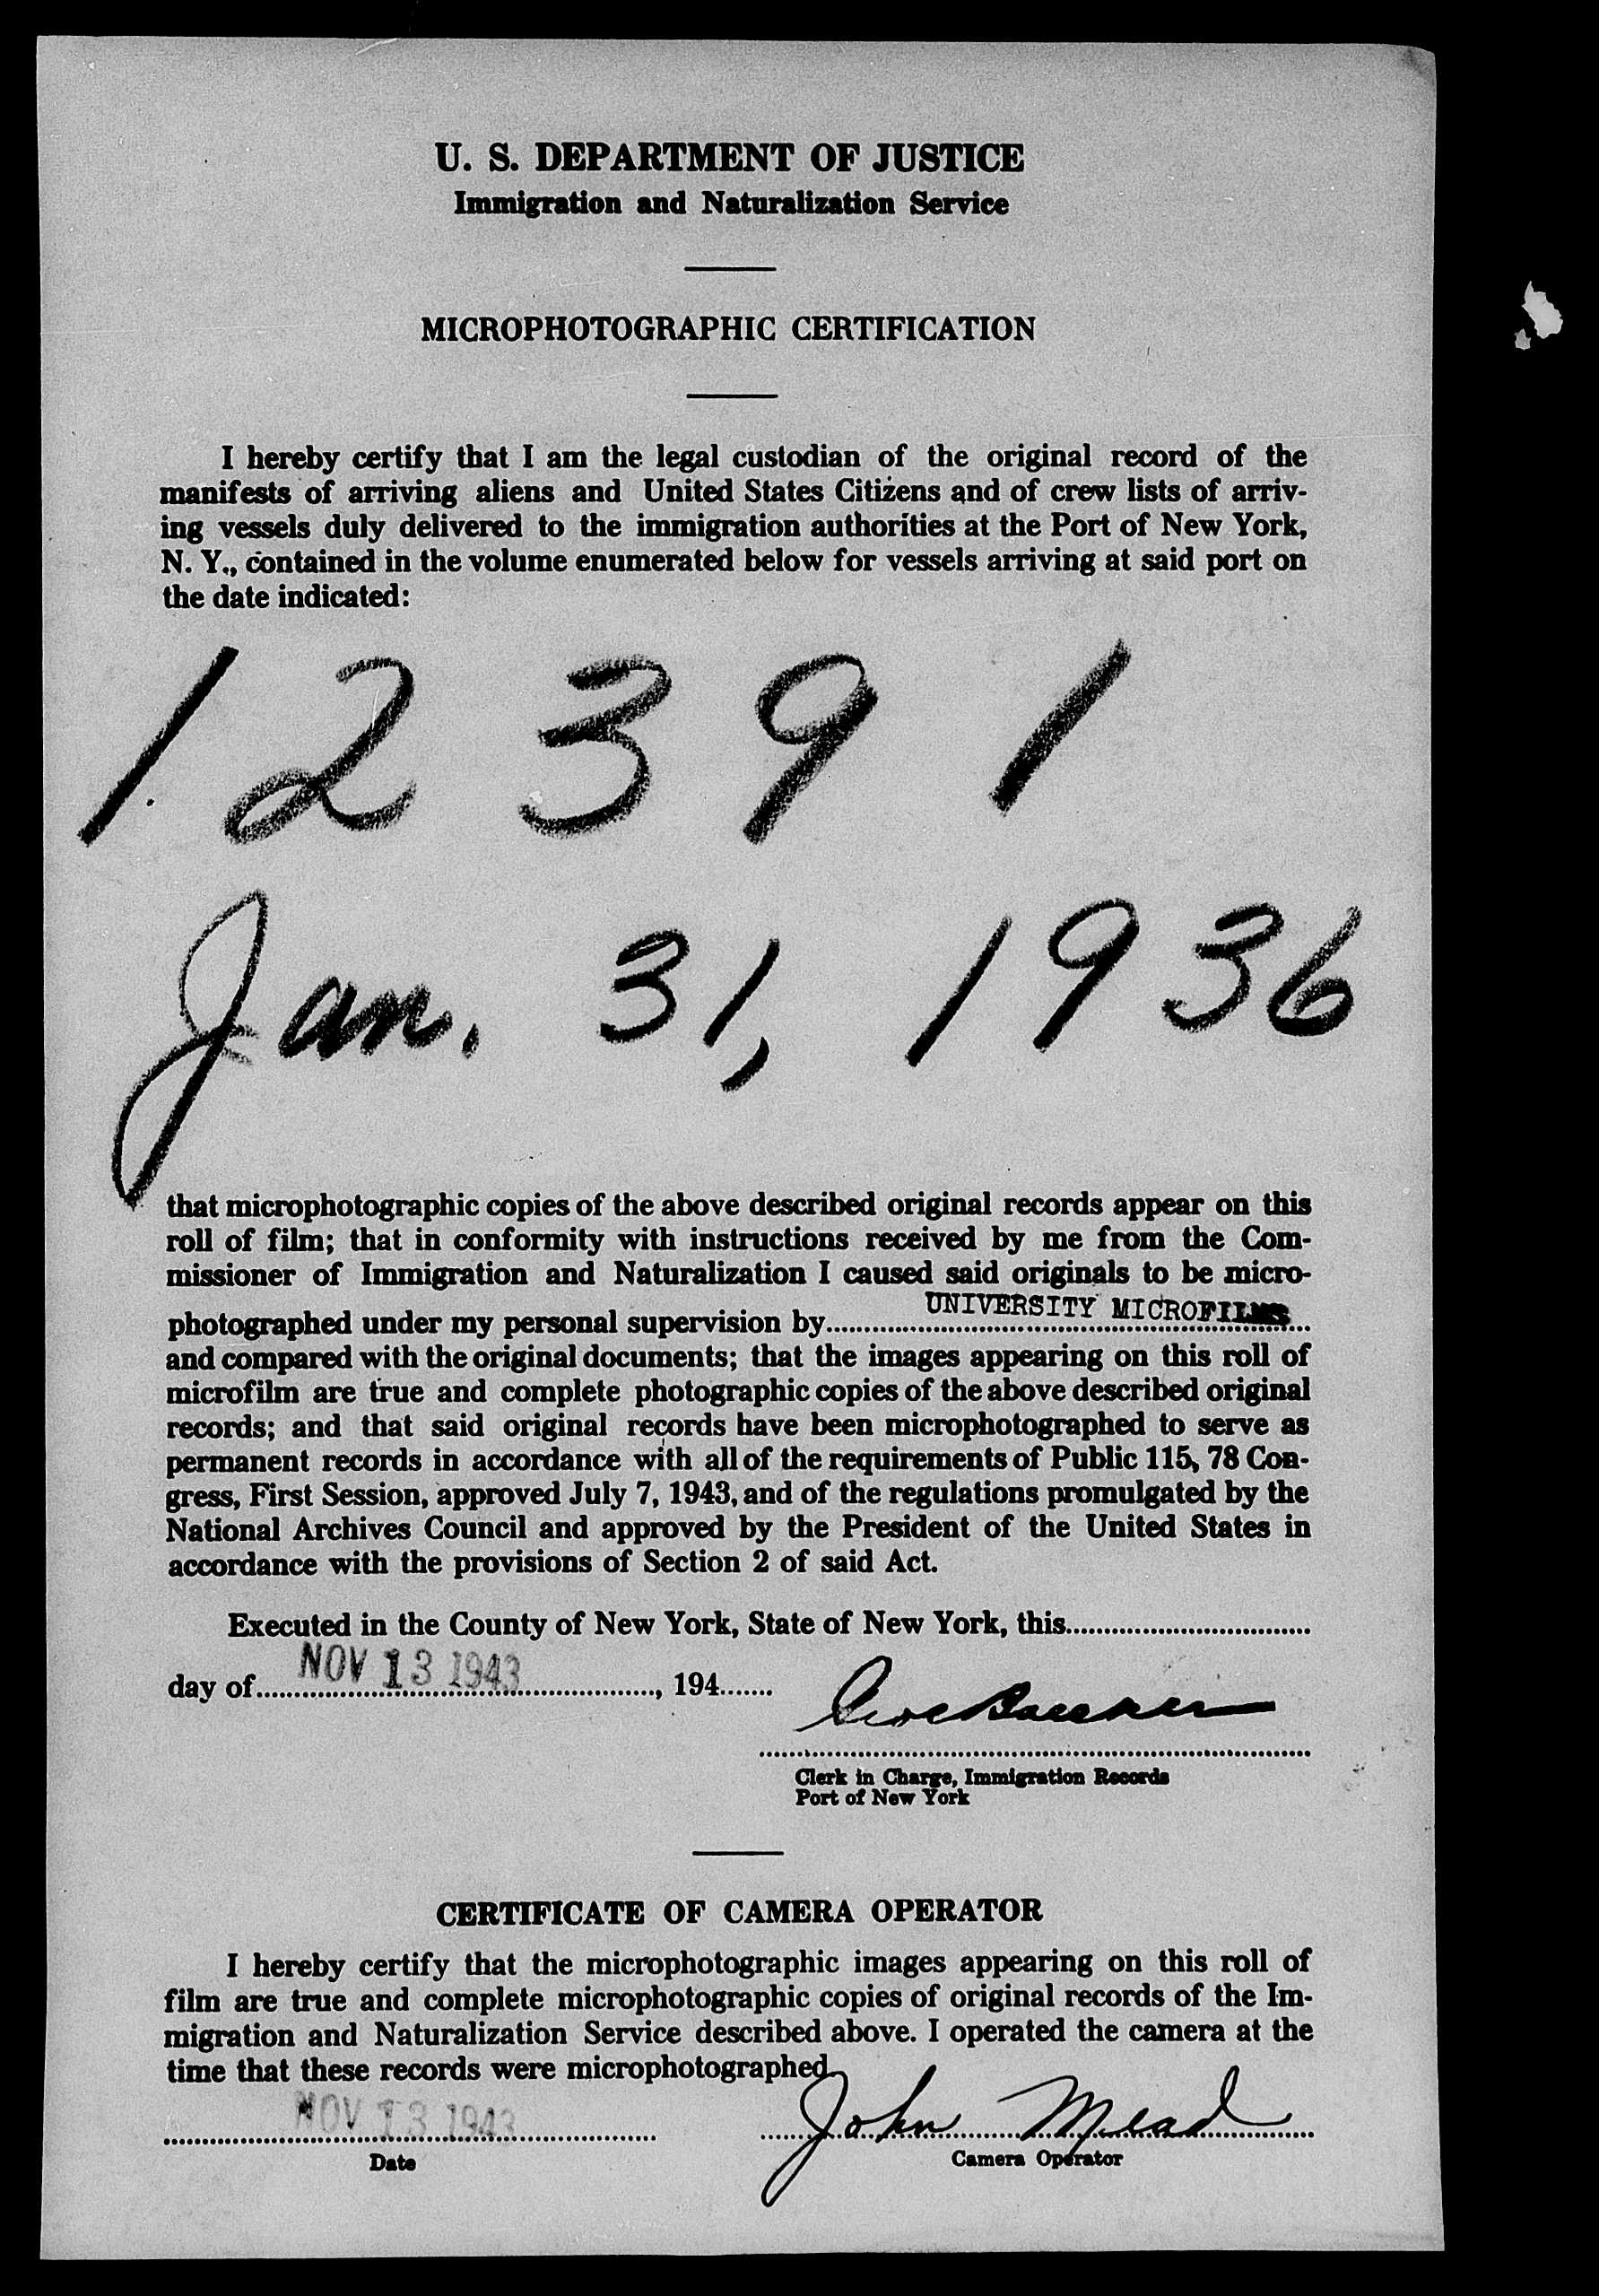 U. S. DEPARTMENT OF JUSTICE
Immigration and Naturalization Service
MICROPHOTOGRAPHIC CERTIFICATION
I hereby certify that I am the legal custodian of the original record of the
manifests of arriving aliens and United States Citizens and of crew lists of arriv-
ing vessels duly delivered to the immigration authorities at the Port of New York,
N. Y., contained in the volume enumerated below for vessels arriving at said port on
the date indicated:
12391
Jan. 31, 1936
that microphotographic copies of the above described original records appear on this
roll of film; that in conformity with instructions received by me from the Com-
missioner of Immigration and Naturalization I caused said originals to be micro-
photographed under my personal supervision by UNIVERSITY MICROFILMS
and compared with the original documents; that the images appearing on this roll of
microfilm are true and complete photographic copies of the above described original
records; and that said original records have been microphotographed to serve as
permanent records in accordance with all of the requirements of Public 115, 78 Con-
gress, First Session, approved July 7, 1943, and of the regulations promulgated by the
National Archives Council and approved by the President of the United States in
accordance with the provisions of Section 2 of said Act.
Executed in the County of New York, State of New York, this
day of NOV 13 1943, 194
Clerk in Charge, Immigration Records
Port of New York
CERTIFICATE OF CAMERA OPERATOR
I hereby certify that the microphotographic images appearing on this roll of
film are true and complete microphotographic copies of original records of the Im-
migration and Naturalization Service described above. I operated the camera at the
time that these records were microphotographed.
NOV 13 1943 John Mead
Date Camera Operator